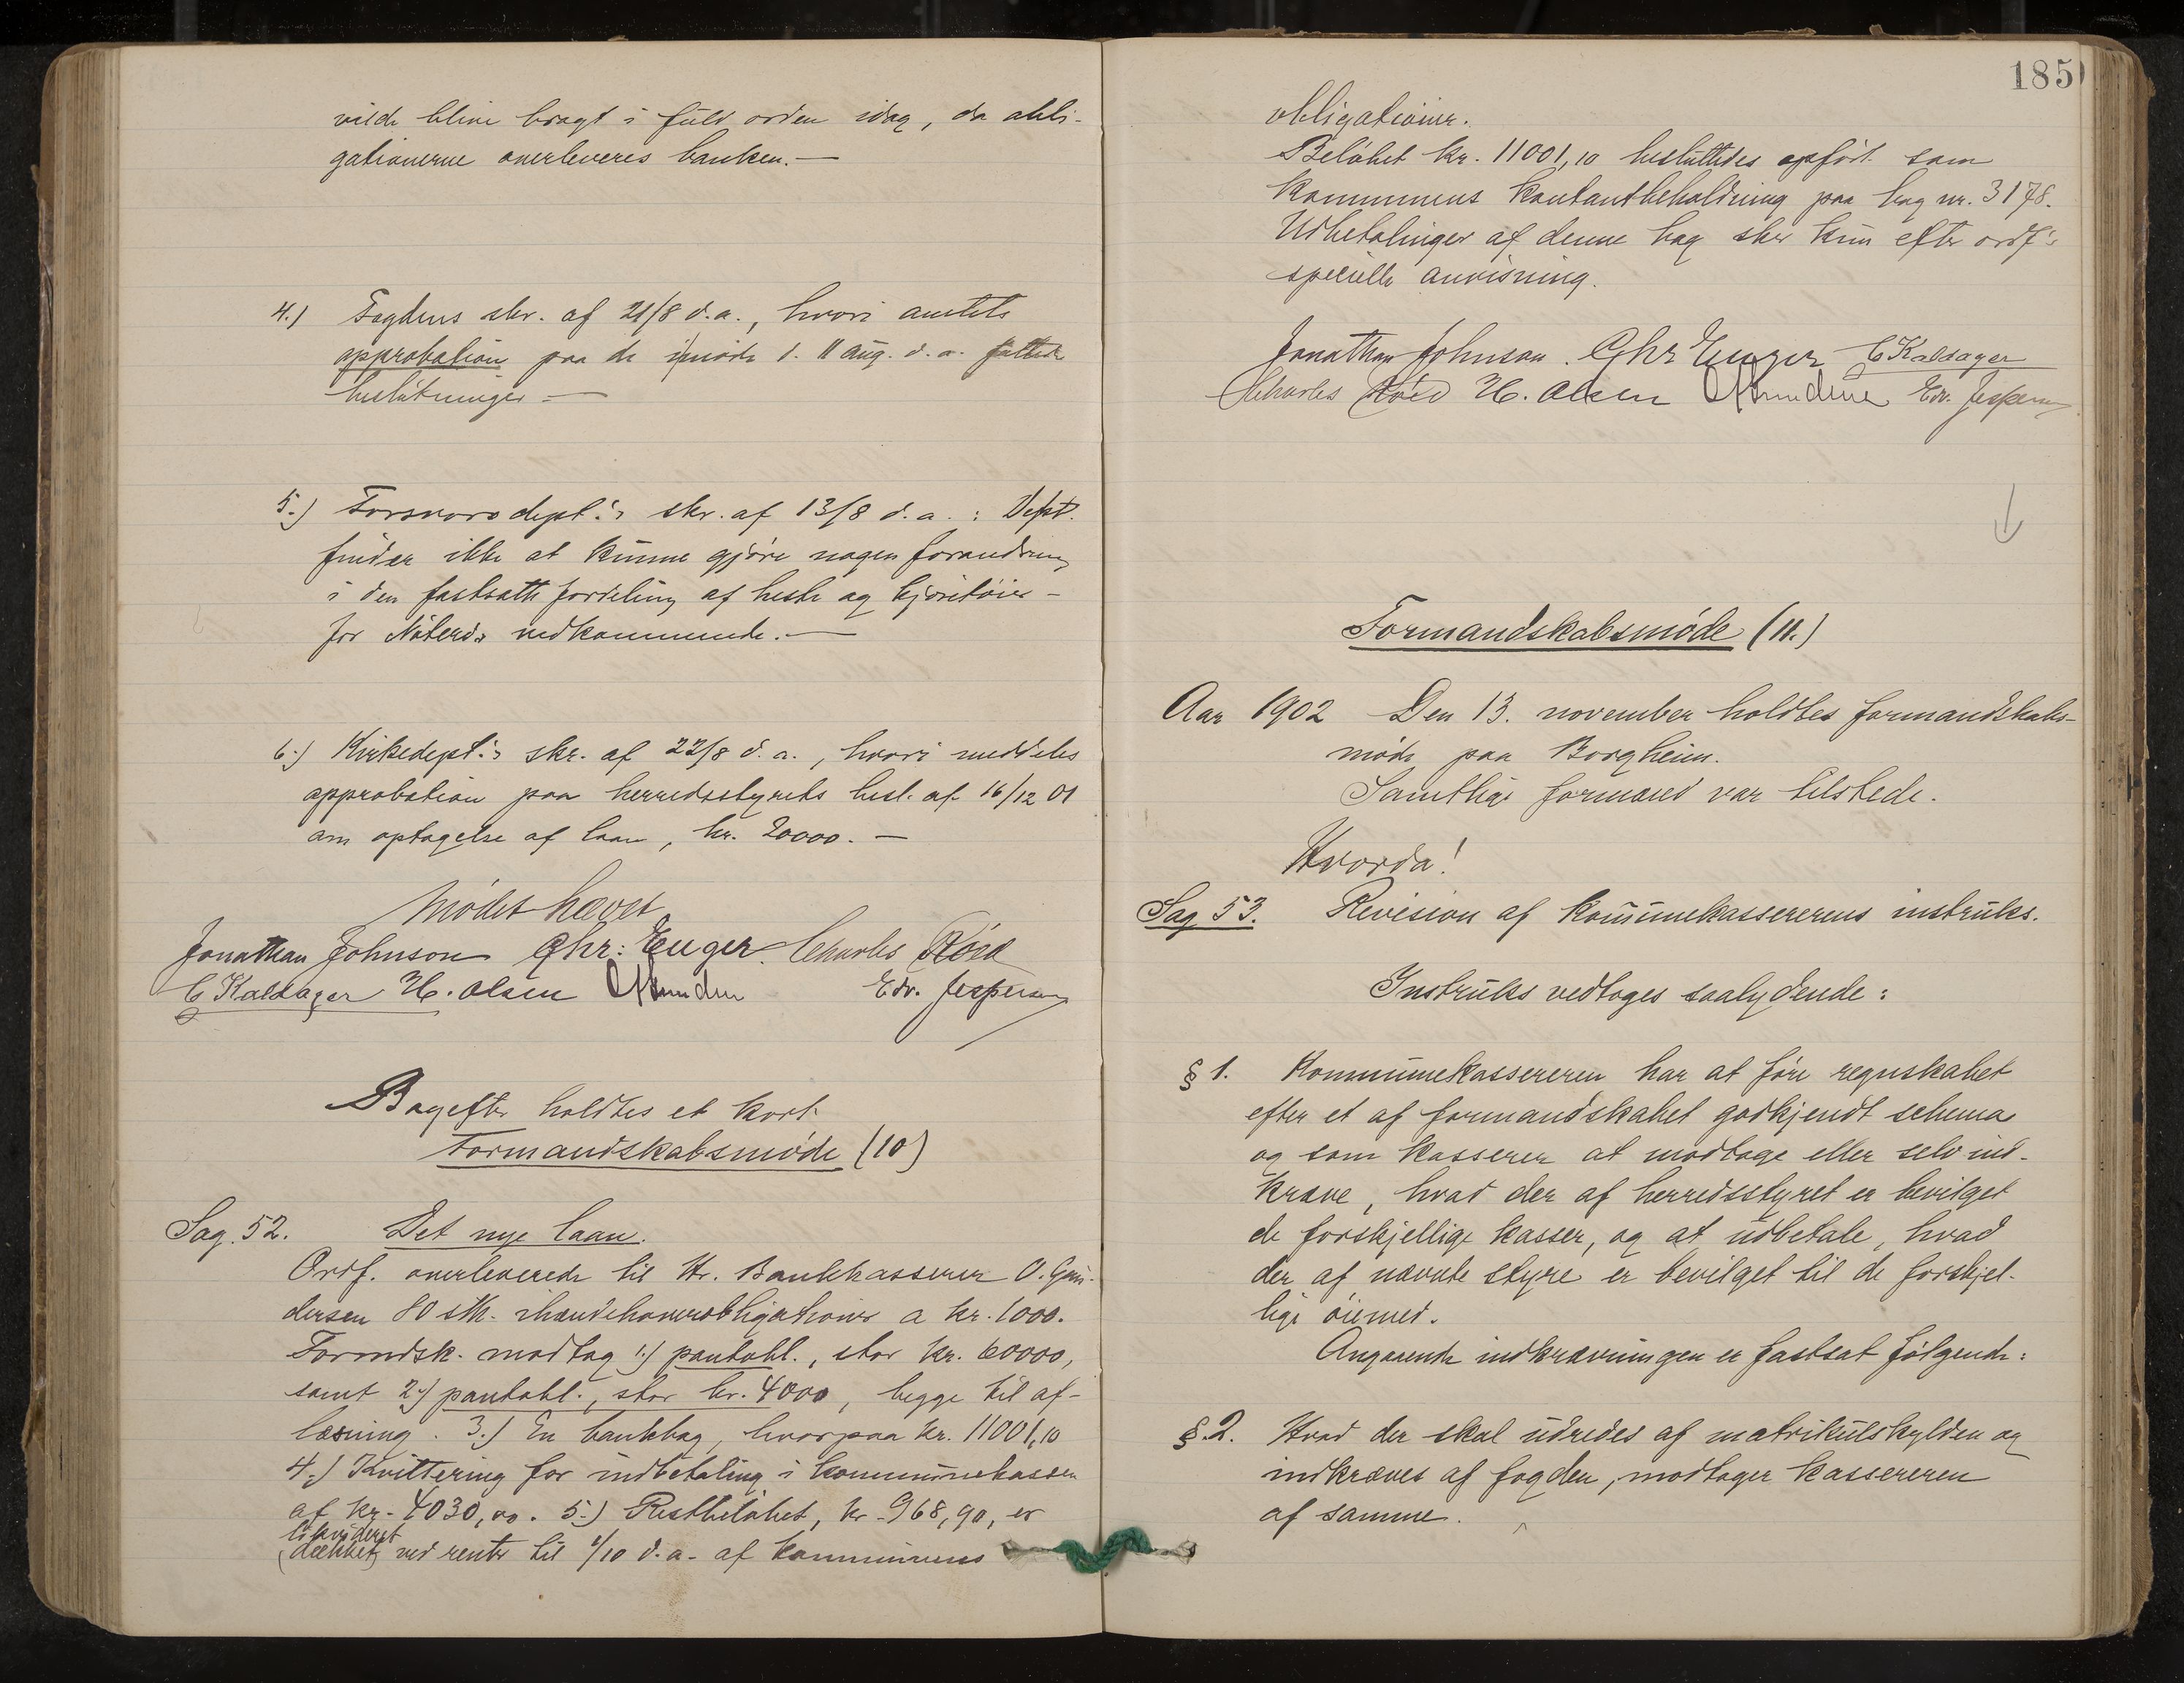 vilde blive bragt i fuld orden idag, da obli-
gationerne overleveres banken.—
4.) Fogdens skr. af 21/8 d.a., hvori amtets
approbation paa de i møde d. 11 aug. d.a. fattede
beslutninger —
5.) Forsvarsdept:s skr. af 13/8 d.a.: Dept.
finder ikke at kunne gjøre nogen forandring
i den fastsatte fordeling af heste og kjøretøier –
for Nøterøs vedkommende.—
6.) Kirkedept:s skr. af 22/8 d.a., hvori meddeles
approbation paa herredsstyrets besl. af 16/12 01
om optagelse af laan, kr. 20000.—
Mødet hævet
Jonathan Johnson Chr: Enger. Charles Røed
C Kaldager H. Olsen Edv. Jespersen
Bagefter holdtes et kort
Formandskabsmøde (10)
Sag 52. Det nye laan.
Ordf. overleverede til Hr. Bankkasserer O. Gun-
dersen 80 stk. ihændehaverobligationer a kr. 1000.
Formdsk. modtog 1.) pantobl., stor kr. 60000,
samt 2.) pantobl., stor kr. 4000, begge til af-
læsning. 3.) En bankbog, hvorpaa kr. 11001,10
4.) Kvittering for indbetaling i kommunekassen
af kr. 4030,00. 5.) Restbeløbet, kr. 968,90, er
likvideret
(dækket) ved renter til 1/10 d.a. af kommunens
185
obligationer.
Beløbet kr. 11001,10 besluttedes opført som
kommunens kontantbeholdning paa bog nr. 3178.
Udbetalinger af denne bog sker kun efter ordf:s
specielle anvisning.
Jonathan Johnson. Chr Enger C Kaldager
Charles Røed H. Olsen Edv. Jespersen
Formandskabsmøde (11.)
Aar 1902 Den 13. november holdtes formandskabs-
møde paa Borgheim.
Samtlige formænd var tilstede.
Hvorda!
Sag 53. Revision af kommunekassererens instruks.
Instruks vedtoges saalydende:
§ 1. Kommunekassereren har at føre regnskabet
efter et af formandskabet godkjendt schema
og som kasserer at modtage eller selv ind-
kræve, hvad der af herredsstyret er bevilget
de forskjellige kasser, og at udbetale, hvad
der af nævnte styre er bevilget til de forskjel-
lige øiemed.
Angaaende indkrævningen er fastsat følgende:
§ 2. Hvad der skal udredes af matrikulskylden og
indkræves af fogden, modtager kassereren
af samme.